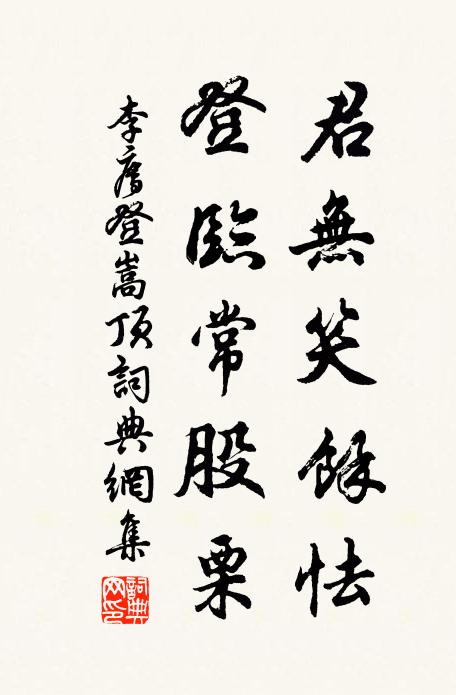 君無笑餘怯
登臨常股栗
李廌登嵩頂詞典網集
詞典网印